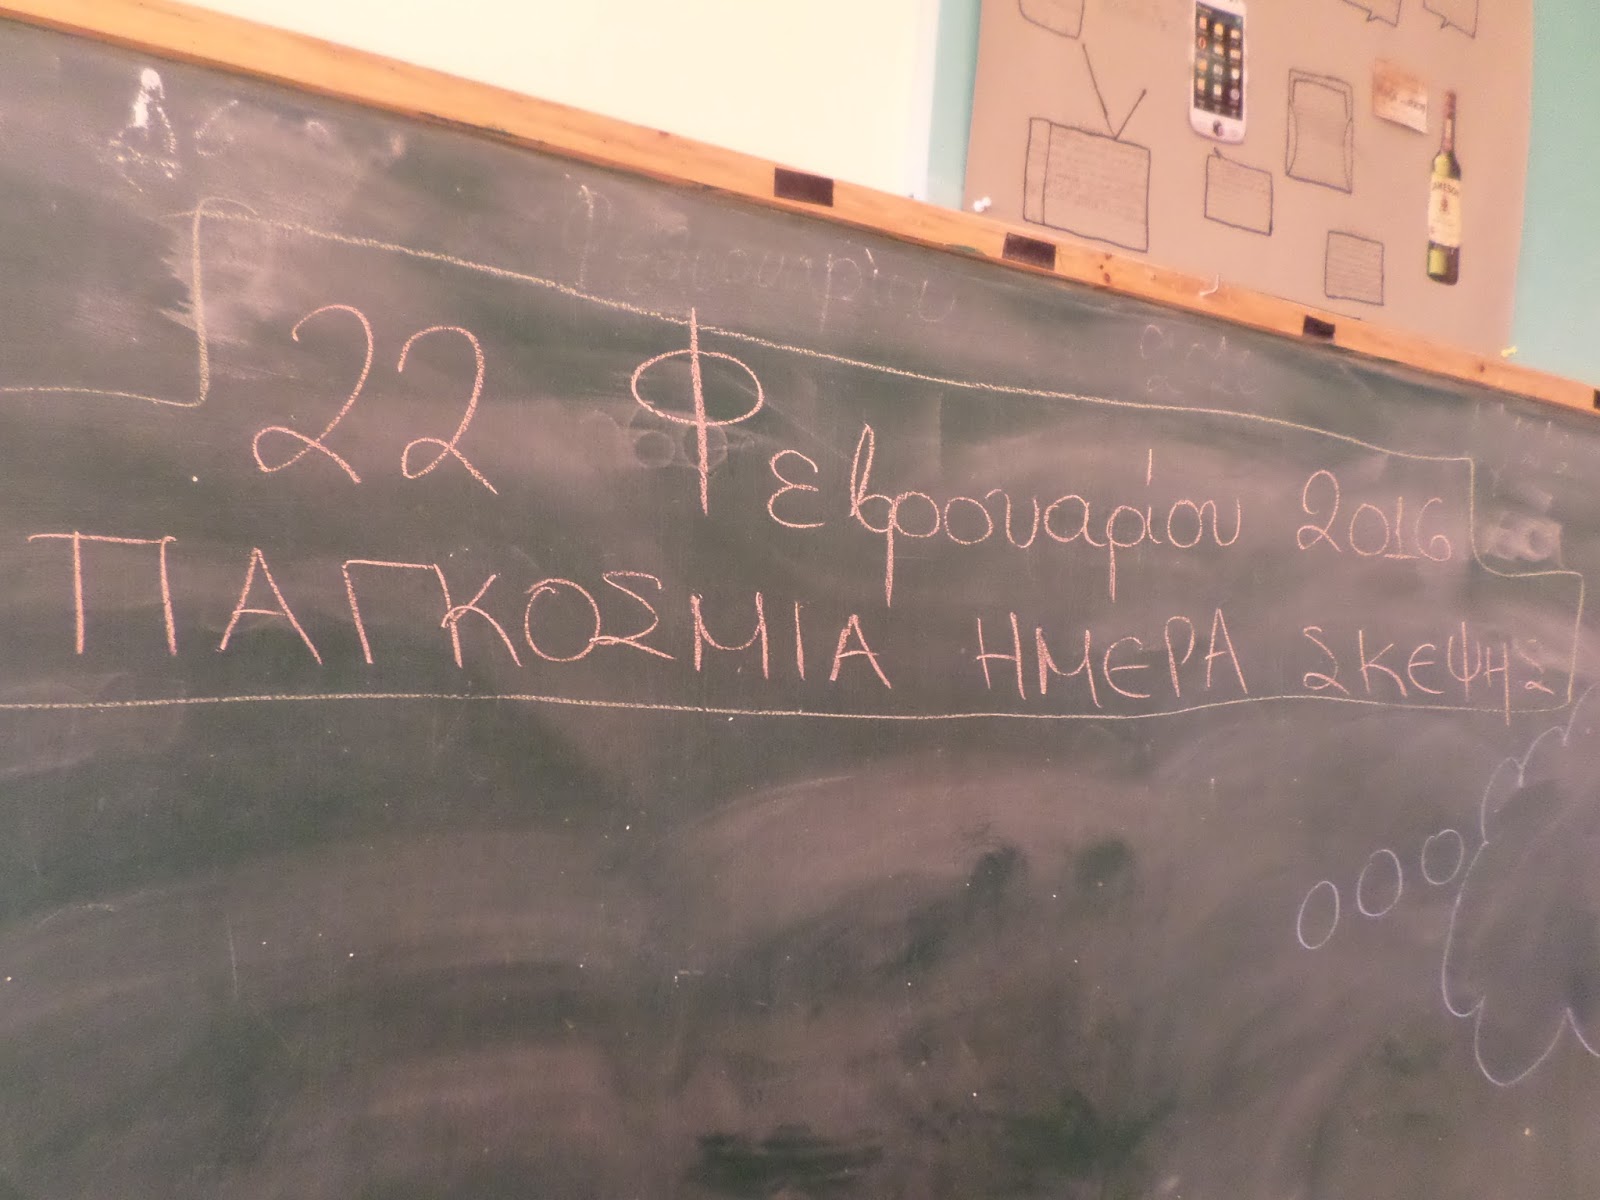 22 Φεβρουαρίου 2016
ΠΑΓΚΟΣΜΙΑ ΗΜΕΡΑ ΣΚΕΨΗΣ
JAMESON